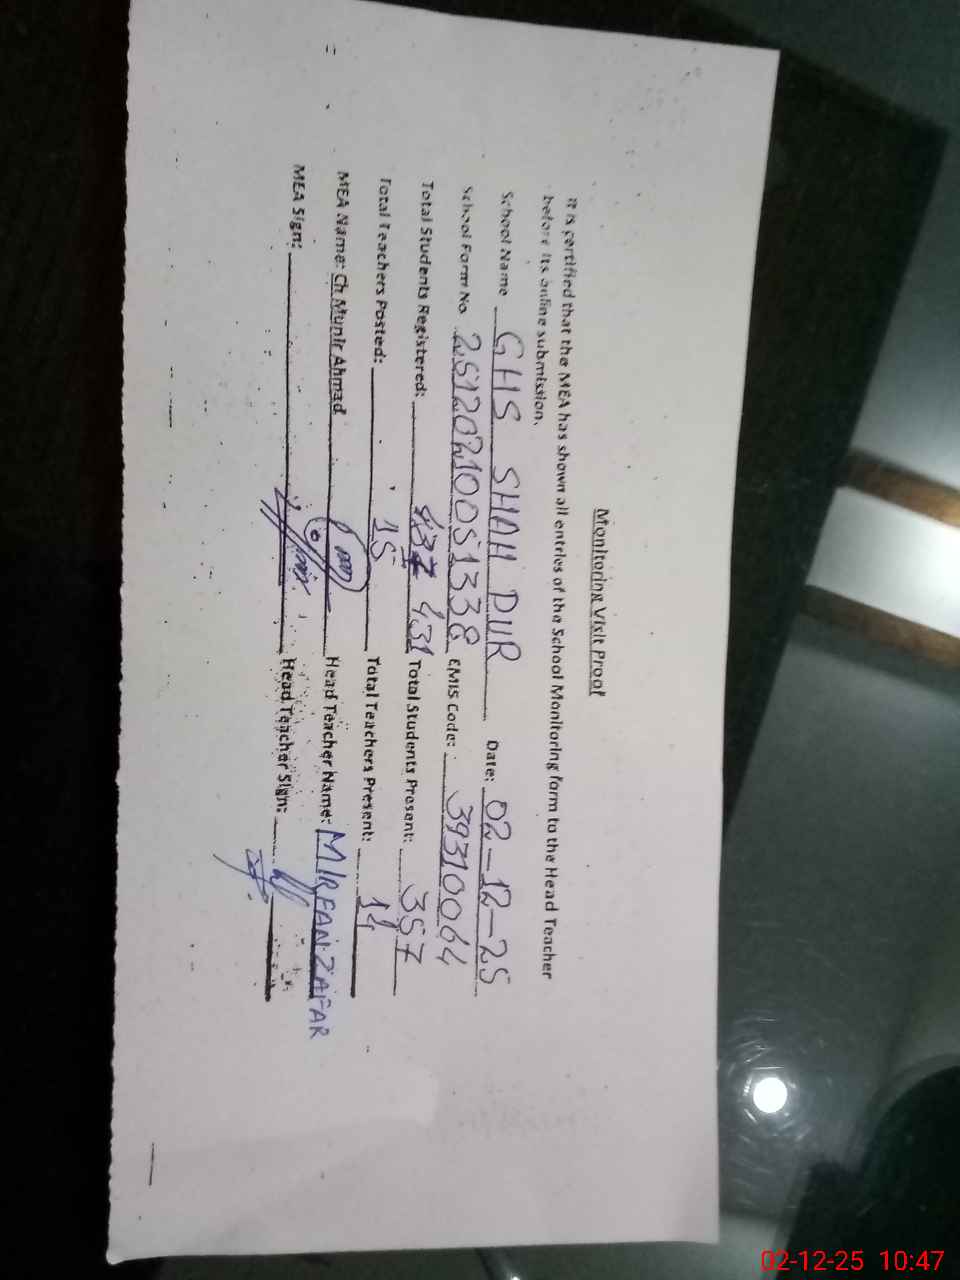 Monitoring Visit Proof
It is certified that the MEA has shown all entries of the School Monitoring form to the Head Teacher
before its online submission.
School Name GHS SHAH PUR Date: 02-12-25
School Form No 25120210051338 EMIS Code: 39310064
Total Students Registered: 437 431 Total Students Present: 357
Total Teachers Posted: 15 Total Teachers Present: 14
MEA Name: Ch Munir Ahmad Head Teacher Name: M IRFAN ZAFAR
MEA Sign: Head Teacher Sign:
02-12-25 10:47